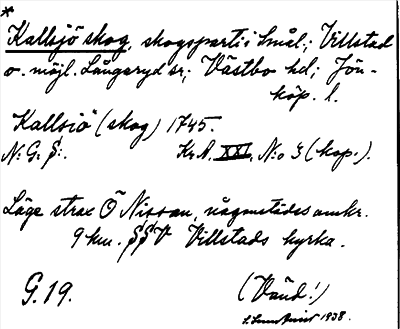 *
Kallsjö skog, skogsparti i Smål.; Villstad
o. möjl. Långaryd sr; Västbo hd; Jön-
köp. l.
"Kallsjö" (skog) 1745.
N:G: S:. Kr.A. XXI, N:o 3 (kop.).
Läge strax Ö Nissan, någonstädes omkr.
9 km. SSV Villstads kyrka.
G. 19. (Vänd!)
1938.